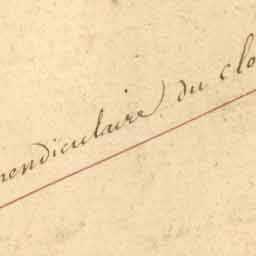 pendiculaire du clo